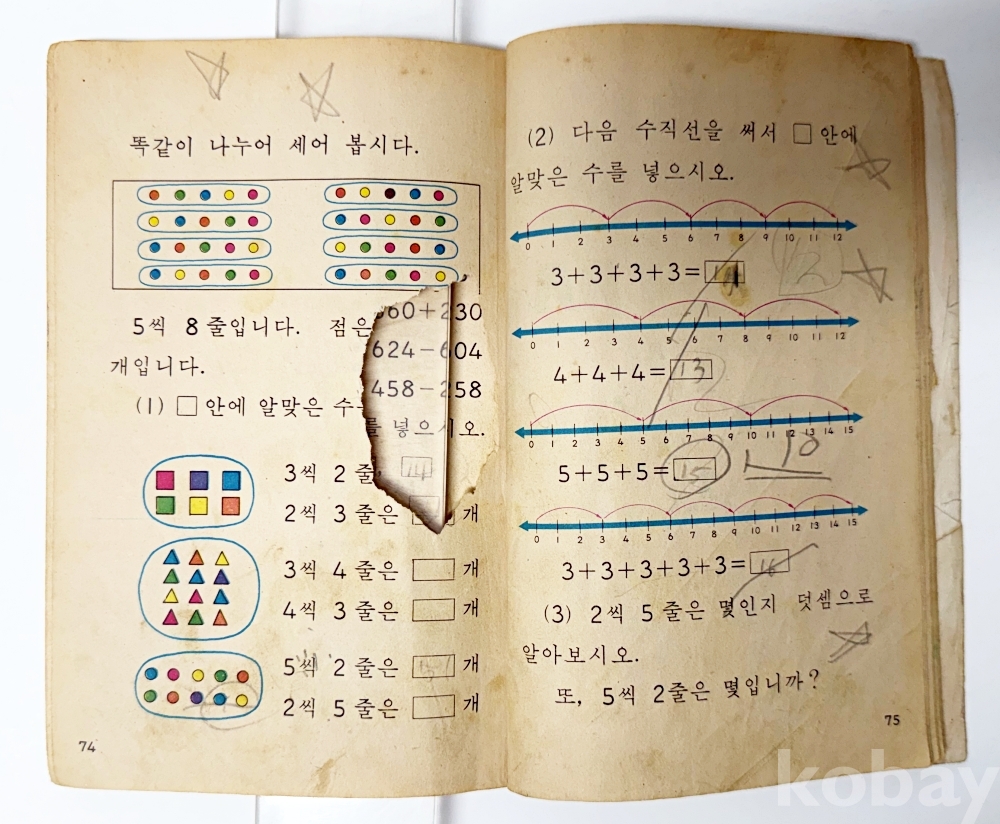 똑같이 나누어 세어 봅시다.
5씩 8줄입니다. 점은
개입니다.
560+230
624-604
458-258
(1) □안에 알맞은 수를 넣으시오.
3씩 2줄 14
2씩 3줄은 개
3씩 4줄은 개
4씩 3줄은 개
5씩 2줄은 개
2씩 5줄은 개
74
(2) 다음 수직선을 써서 □안에
알맞은 수를 넣으시오.
0 1 2 3 4 5 6 7 8 9 10 11 12
3+3+3+3=
12
0 1 2 3 4 5 6 7 8 9 10 11 12
4+4+4=13
0 1 2 3 4 5 6 7 8 9 10 11 12 13 14 15
5+5+5=15
10
0 1 2 3 4 5 6 7 8 9 10 11 12 13 14 15
3+3+3+3+3=16
(3) 2씩 5줄은 몇인지 덧셈으로
알아보시오.
또, 5씩 2줄은 몇입니까?
75
kobay